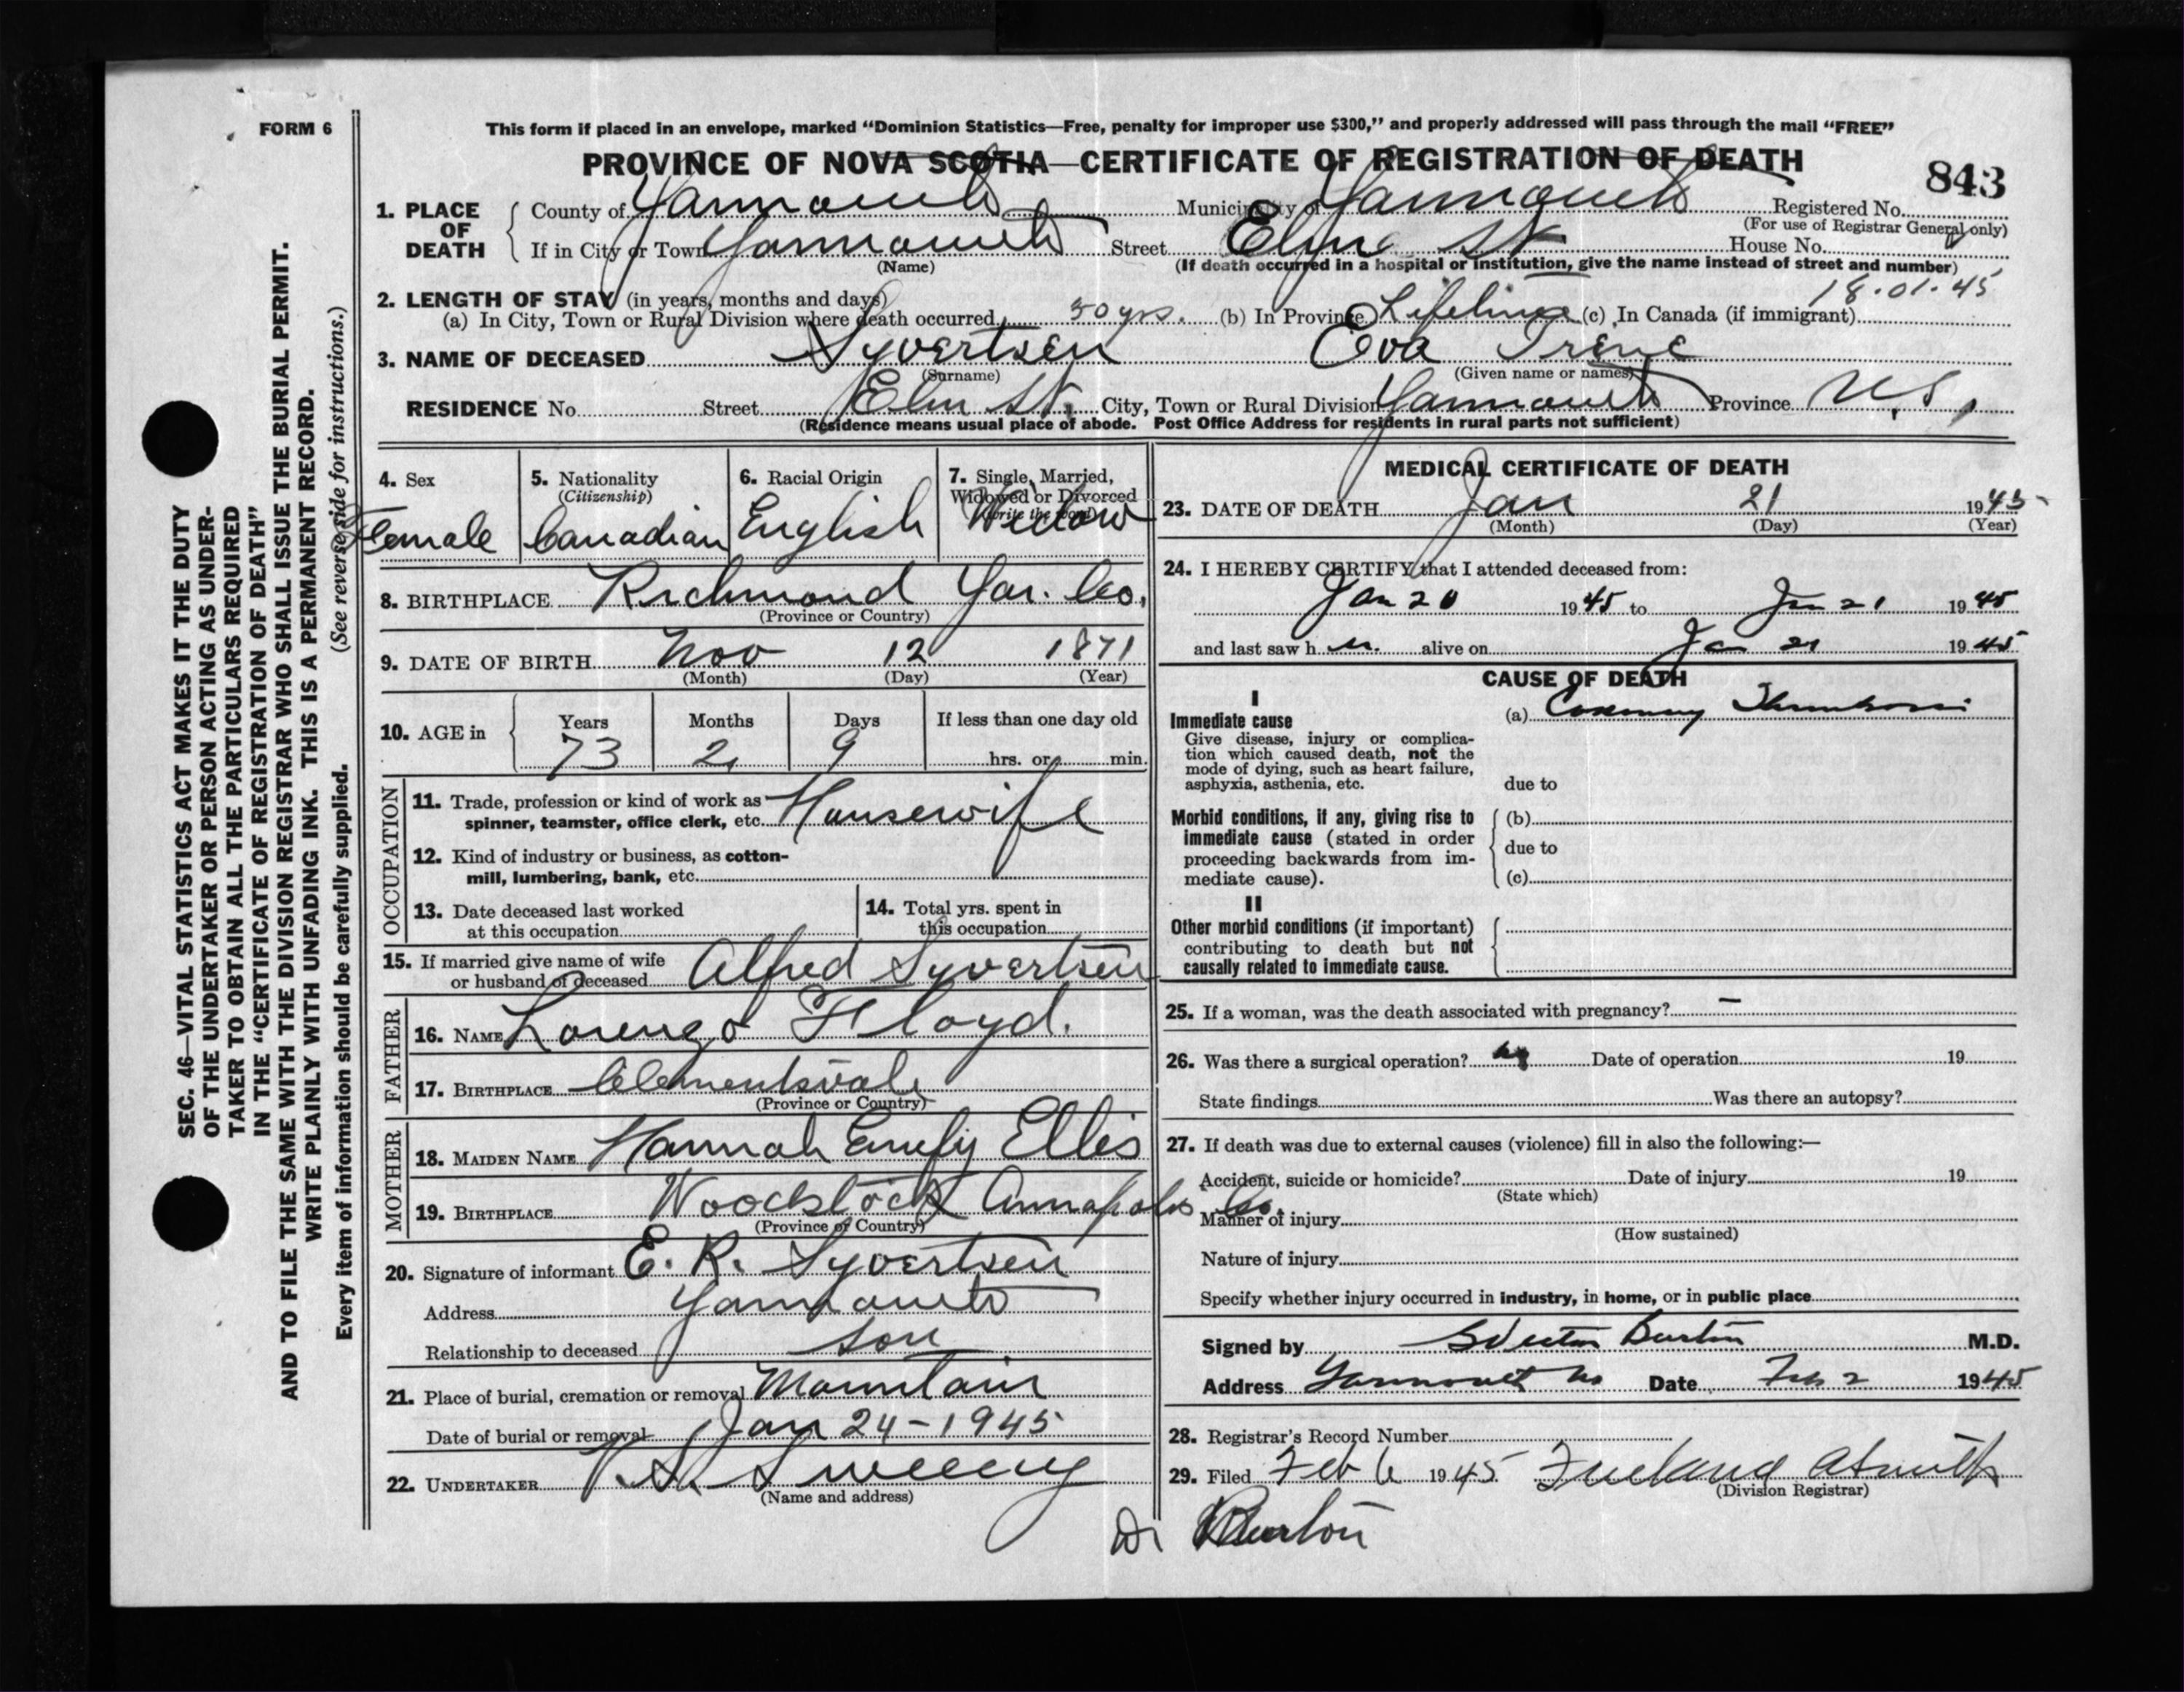 FORM 6
This form if placed in an envelope, marked “Dominion Statistics—Free, penalty for improper use $300,” and properly addressed will pass through the mail “FREE”
PROVINCE OF NOVA SCOTIA—CERTIFICATE OF REGISTRATION OF DEATH
843
1. PLACE OF DEATH
County of Yarmouth Municipality of Yarmouth Registered No.
(For use of Registrar General only)
If in City or Town Yarmouth Street Elm St House No.
(Name)
(If death occurred in a hospital or institution, give the name instead of street and number)
18.01.45
2. LENGTH OF STAY (in years, months and days)
(a) In City, Town or Rural Division where death occurred 50 yrs. (b) In Province Lifetime (c) In Canada (if immigrant)
3. NAME OF DECEASED Syvertsen Eva Irene
(Surname) (Given name or names)
RESIDENCE No. Street Elm St. City, Town or Rural Division Yarmouth Province N.S,
(Residence means usual place of abode. Post Office Address for residents in rural parts not sufficient)
4. Sex
Female
5. Nationality
(Citizenship)
Canadian
6. Racial Origin
English
7. Single, Married,
Widowed or Divorced
(write the word)
Widow
8. BIRTHPLACE Richmond Yar. Co.
(Province or Country)
9. DATE OF BIRTH Nov 12 1871
(Month) (Day) (Year)
10. AGE in
Years Months Days If less than one day old
73 2 9 hrs. or min.
OCCUPATION
11. Trade, profession or kind of work as
spinner, teamster, office clerk, etc. Housewife
12. Kind of industry or business, as cotton-
mill, lumbering, bank, etc.
13. Date deceased last worked
at this occupation
14. Total yrs. spent in
this occupation
15. If married give name of wife
or husband of deceased Alfred Syvertsen
FATHER
16. NAME Lorenzo Floyd.
17. BIRTHPLACE Clementsvale
(Province or Country)
MOTHER
18. MAIDEN NAME Hannah Emily Ellis
19. BIRTHPLACE Woodstock Annapolis Co.
(Province or Country)
20. Signature of informant E. R. Syvertsen
Address Yarmouth
Relationship to deceased son
21. Place of burial, cremation or removal Mountain
Date of burial or removal Jan 24-1945
22. UNDERTAKER V.S. Sweeny
(Name and address)
MEDICAL CERTIFICATE OF DEATH
23. DATE OF DEATH Jan 21 1945
(Month) (Day) (Year)
24. I HEREBY CERTIFY that I attended deceased from:
Jan 20 1945 to Jan 21 1945
and last saw h er. alive on Jan 21 1945
CAUSE OF DEATH
I
Immediate cause
Give disease, injury or complica-
tion which caused death, not the
mode of dying, such as heart failure,
asphyxia, asthenia, etc.
(a) Coronary Thrombosis
due to
Morbid conditions, if any, giving rise to
immediate cause (stated in order
proceeding backwards from im-
mediate cause).
(b)
due to
(c)
II
Other morbid conditions (if important)
contributing to death but not
causally related to immediate cause.
25. If a woman, was the death associated with pregnancy? –
26. Was there a surgical operation? no Date of operation 19
State findings Was there an autopsy?
27. If death was due to external causes (violence) fill in also the following:—
Accident, suicide or homicide? Date of injury 19
(State which)
Manner of injury
(How sustained)
Nature of injury
Specify whether injury occurred in industry, in home, or in public place
Signed by Burton M.D.
Address Yarmouth NS Date Feb 2 1945
28. Registrar's Record Number
29. Filed Feb 6 1945
(Division Registrar)
Dr Burton
SEC. 46—VITAL STATISTICS ACT MAKES IT THE DUTY
OF THE UNDERTAKER OR PERSON ACTING AS UNDER-
TAKER TO OBTAIN ALL THE PARTICULARS REQUIRED
IN THE “CERTIFICATE OF REGISTRATION OF DEATH”
AND TO FILE THE SAME WITH THE DIVISION REGISTRAR WHO SHALL ISSUE THE BURIAL PERMIT.
WRITE PLAINLY WITH UNFADING INK. THIS IS A PERMANENT RECORD.
Every item of information should be carefully supplied. (See reverse side for instructions.)